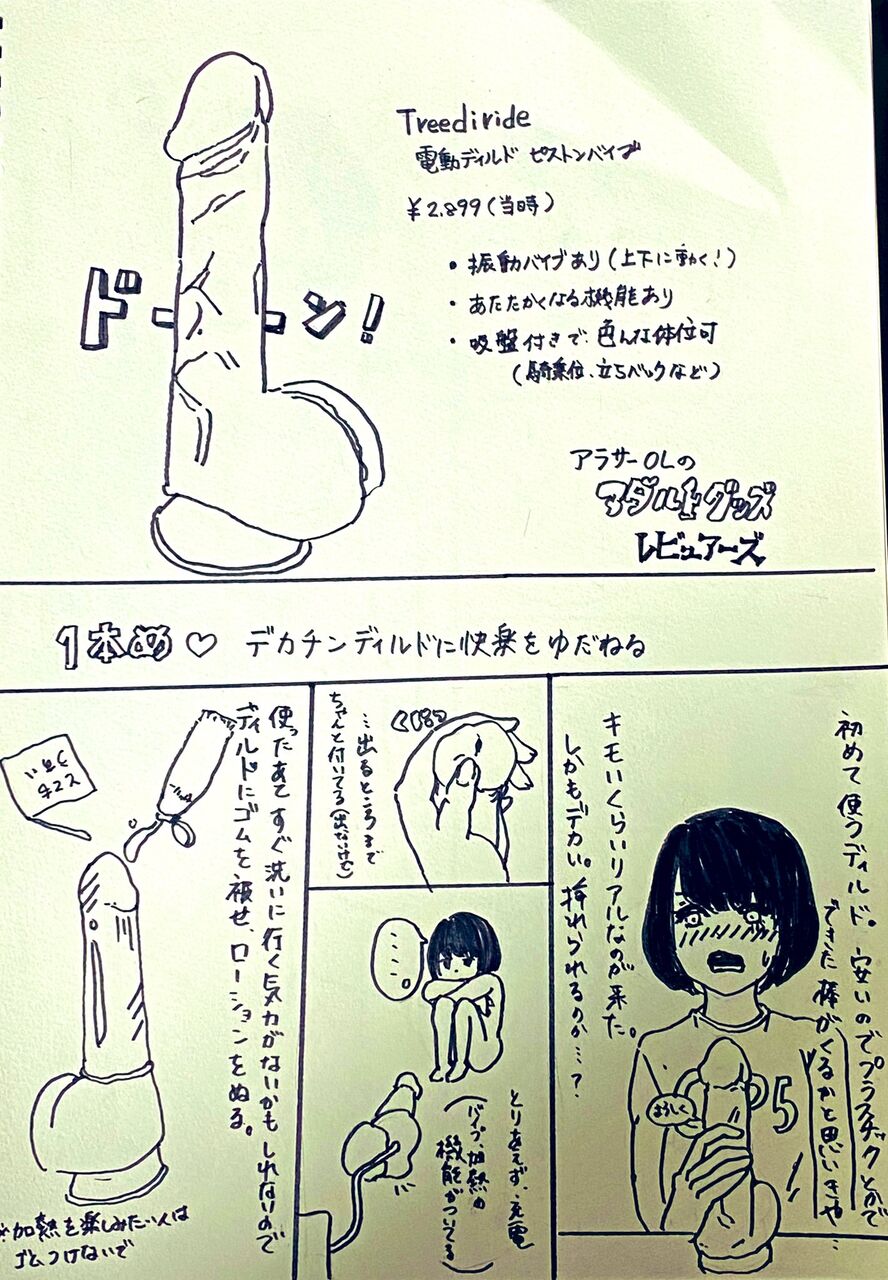 Treediride
電動ディルド ピストンバイブ
¥2,899(当時)
・振動バイブあり(上下に動く!)
・あたたかくなる機能あり
・吸盤付きで、色んな体位可
(騎乗位、立ちバックなど)
ドーン!
アラサーOLの
アダルトグッズ
レビュアーズ
1本め♡ デカチンディルドに快楽をゆだねる
初めて使うディルド。安いのでプラスチックとかで
できた棒がくるかと思いきや…
キモいくらいリアルなのが来た。
しかもデカい。挿れられるのか…?
よろしく
5
くぱぁ
…出るところまで
ちゃんと付いてる(出ないけど)
・・・・。
とりあえず、充電
(バイブ、加熱の
機能がついてる)
使ったあと すぐ洗いに行く気力がないかも しれないので
ディルドにゴムを被せ、ローションをぬる。
※加熱を楽しみたい人は
ゴムつけないで